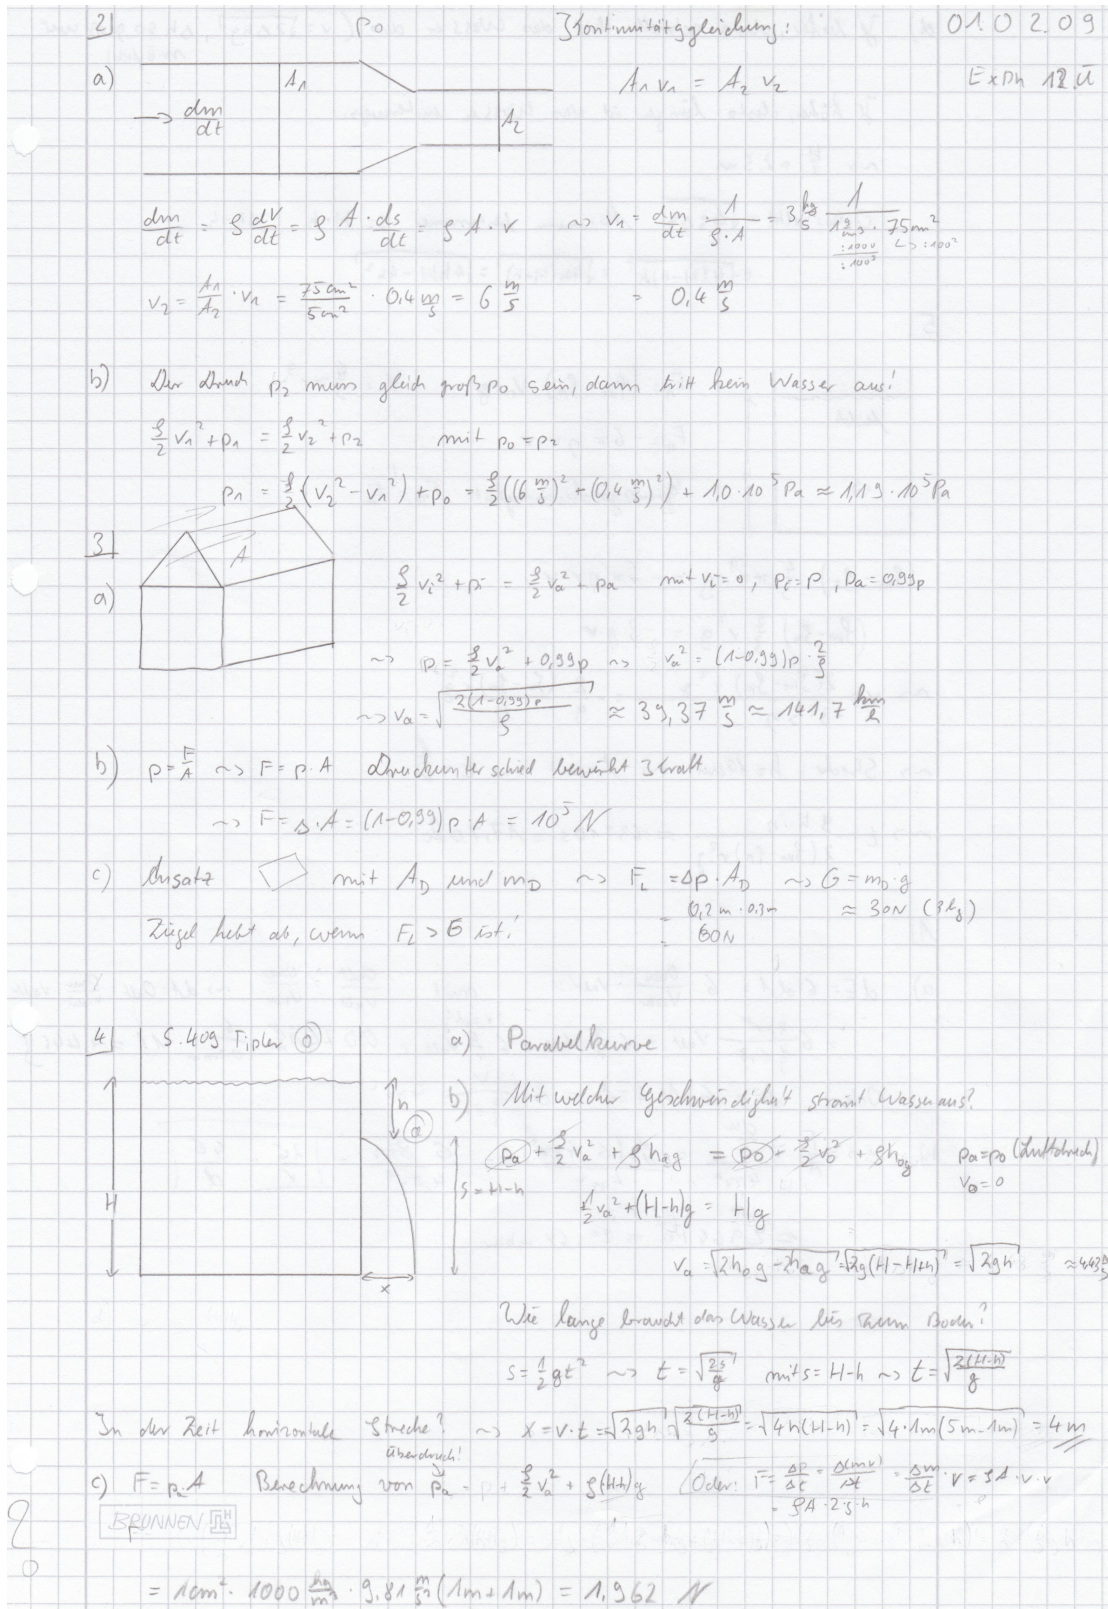 2) p₀ Kontinuitätsgleichung: 01.02.09
a) A₁ A₁ v₁ = A₂ v₂ ExPh 12.Ü
→ dm/dt A₂
dm/dt = ρ dV/dt = ρ A · ds/dt = ρ A · v ⇝ v₁ = dm/dt · 1/(ρ · A) = 3 kg/s · 1/(1 g/cm³ · 75cm²)
:1000 ↳ :100²
:100³
v₂ = A₁/A₂ · v₁ = 75cm²/5cm² · 0,4 m/s = 6 m/s = 0,4 m/s
b) Der Druck p₂ muss gleich groß p₀ sein, dann tritt kein Wasser aus!
ρ/2 v₁² + p₁ = ρ/2 v₂² + p₂ mit p₀ = p₂
p₁ = ρ/2 (v₂² - v₁²) + p₀ = ρ/2 ((6 m/s)² - (0,4 m/s)²) + 1,0 · 10⁵ Pa ≈ 1,19 · 10⁵ Pa
3) A
a) ρ/2 vᵢ² + pᵢ = ρ/2 vₐ² + pₐ mit vᵢ = 0, pᵢ = p, pₐ = 0,99p
⇝ p = ρ/2 vₐ² + 0,99p ⇝ vₐ² = (1-0,99)p · 2/ρ
⇝ vₐ = √(2(1-0,99)p/ρ) ≈ 39,37 m/s ≈ 141,7 km/h
b) p = F/A ⇝ F = p · A Druckunterschied bewirkt Kraft
⇝ F = Δ · A = (1-0,99) p · A = 10⁵ N
c) Ansatz mit A_D und m_D ⇝ F_L = Δp · A_D ⇝ G = m_D · g
= 0,2 m · 0,3m ≈ 30N (3kg)
Ziegel hebt ab, wenn F_L > G ist! = 60N
4) S. 409 Tipler ⓪ a) Parabelkurve
h b) Mit welcher Geschwindigkeit strömt Wasser aus?
ⓐ pₐ + ρ/2 vₐ² + ρ hₐg = p₀ + ρ/2 v₀² + ρh₀g pₐ = p₀ (Luftdruck)
v₀ = 0
H s = H-h ½ vₐ² + (H-h)g = Hg
vₐ = √(2h₀g - 2hₐg) = √(2g(H-H+h)) = √(2gh) ≈ 4,43 m/s
x
Wie lange braucht das Wasser bis zum Boden?
s = ½ gt² ⇝ t = √(2s/g) mit s = H-h ⇝ t = √(2(H-h)/g)
In der Zeit horizontale Strecke? ⇝ x = v · t = √(2gh) √(2(H-h)/g) = √(4h(H-h)) = √(4 · 1m(5m-1m)) = 4m
Überdruck!
c) F = pₐ A Berechnung von pₐ = p + ρ/2 vₐ² + ρ(H-h)g (Oder: F = Δp/Δt = Δ(mv)/Δt = Δm/Δt · v = ρA · v · v
= ρA · 2 · g · h
BRUNNEN
F
= 1cm² · 1000 kg/m³ · 9,81 m/s² (1m + 1m) = 1,962 N